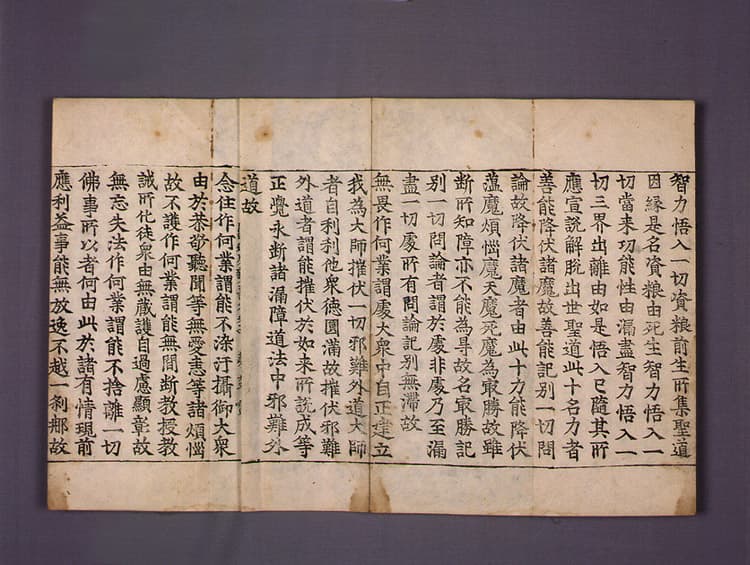 智力悟入一切資粮前生所集聖道
因緣是名資粮由死生智力悟入一
切當来功能性由漏盡智力悟入一
切三界出離由如是悟入已隨其所
應宣說解脫出世聖道此十名力者
善能降伏諸魔故善能記別一切問
論故降伏諸魔者由此十力能降伏
薀魔煩惱魔天魔死魔為冣勝故雖
斷所知障亦不能為㝵故名冣勝記
別一切問論者謂於處非處乃至漏
盡一切處所有問論記別無滯故
無畏作何業謂處大衆中自正建立
我為大師摧伏一切邪難外道大師
者自利利他衆德圓滿故摧伏邪難
外道者謂能摧伏於如来所說成等
正覺永斷諸漏障道法中邪難外
道故
念住作何業謂能不染汙攝御大衆
由於恭敬聽聞等無愛恚等諸煩惱
故不護作何業謂能無間断教授教
誡所化徒衆由無藏護自過應顯彰故
無忘失法作何業謂能不捨離一切
佛事所以者何由此於諸有情現前
應利益事能無放逸不越一刹那故